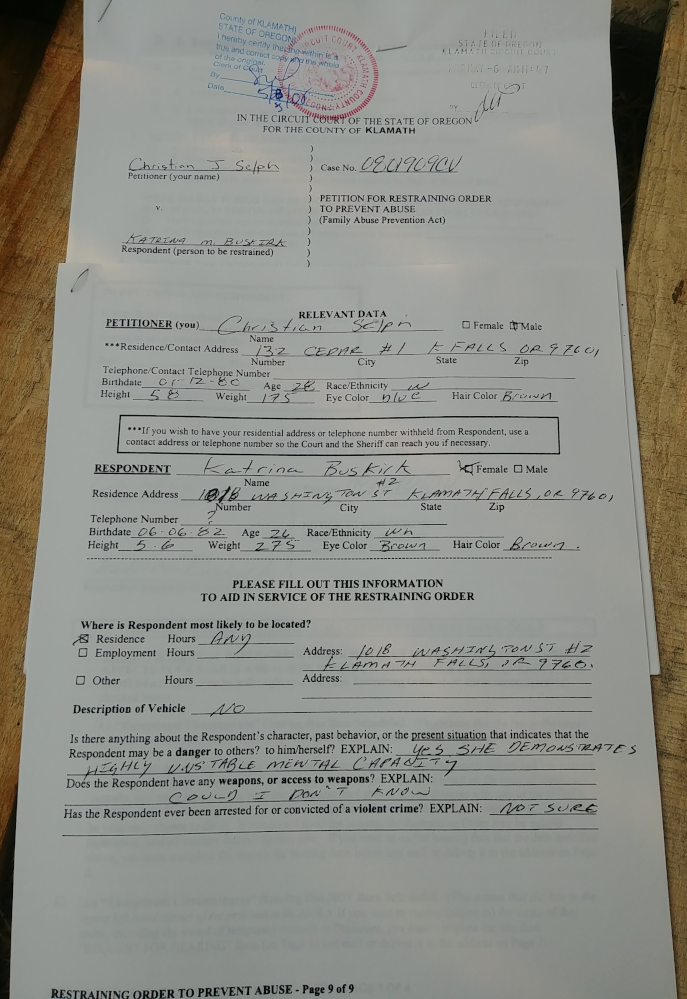 County of KLAMATH)
STATE OF OREGON
I hereby certify the within is a
true and correct copy and the whole
of the original.
Clerk of Court
By
Date
CIRCUIT COURT KLAMATH COUNTY OREGON
FILED
STATE OF OREGON
KLAMATH
BY
IN THE CIRCUIT COURT OF THE STATE OF OREGON
FOR THE COUNTY OF KLAMATH
Christian J Selph
Petitioner (your name)
v.
KATRINA M. BUSKIRK
Respondent (person to be restrained)
Case No. 0801909CV
PETITION FOR RESTRAINING ORDER
TO PREVENT ABUSE
(Family Abuse Prevention Act)
RELEVANT DATA
PETITIONER (you) Christian Selph Female Male
Name
***Residence/Contact Address 132 CEDAR #1 K FALLS OR 97601
Number City State Zip
Telephone/Contact Telephone Number
Birthdate 01-12-80 Age 28 Race/Ethnicity W
Height 58 Weight 175 Eye Color blue Hair Color Brown
***If you wish to have your residential address or telephone number withheld from Respondent, use a
contact address or telephone number so the Court and the Sheriff can reach you if necessary.
RESPONDENT Katrina Buskirk Female Male
Name #2
Residence Address 1018 WASHINGTON ST KLAMATH FALLS, OR 97601
Number City State Zip
Telephone Number ?
Birthdate 06-06-82 Age 26 Race/Ethnicity Wh
Height 5-6 Weight 275 Eye Color Brown Hair Color Brown.
PLEASE FILL OUT THIS INFORMATION
TO AID IN SERVICE OF THE RESTRAINING ORDER
Where is Respondent most likely to be located?
Residence Hours ANY
Employment Hours Address: 1018 WASHINGTON ST #2
KLAMATH FALLS, OR 9760.
Other Hours Address:
Description of Vehicle NO
Is there anything about the Respondent's character, past behavior, or the present situation that indicates that the
Respondent may be a danger to others? to him/herself? EXPLAIN: Yes SHE DEMONSTRATES
HIGHLY UNSTABLE MENTAL CAPACITY
Does the Respondent have any weapons, or access to weapons? EXPLAIN:
COULD I DON'T KNOW
Has the Respondent ever been arrested for or convicted of a violent crime? EXPLAIN: NOT SURE
RESTRAINING ORDER TO PREVENT ABUSE - Page 9 of 9